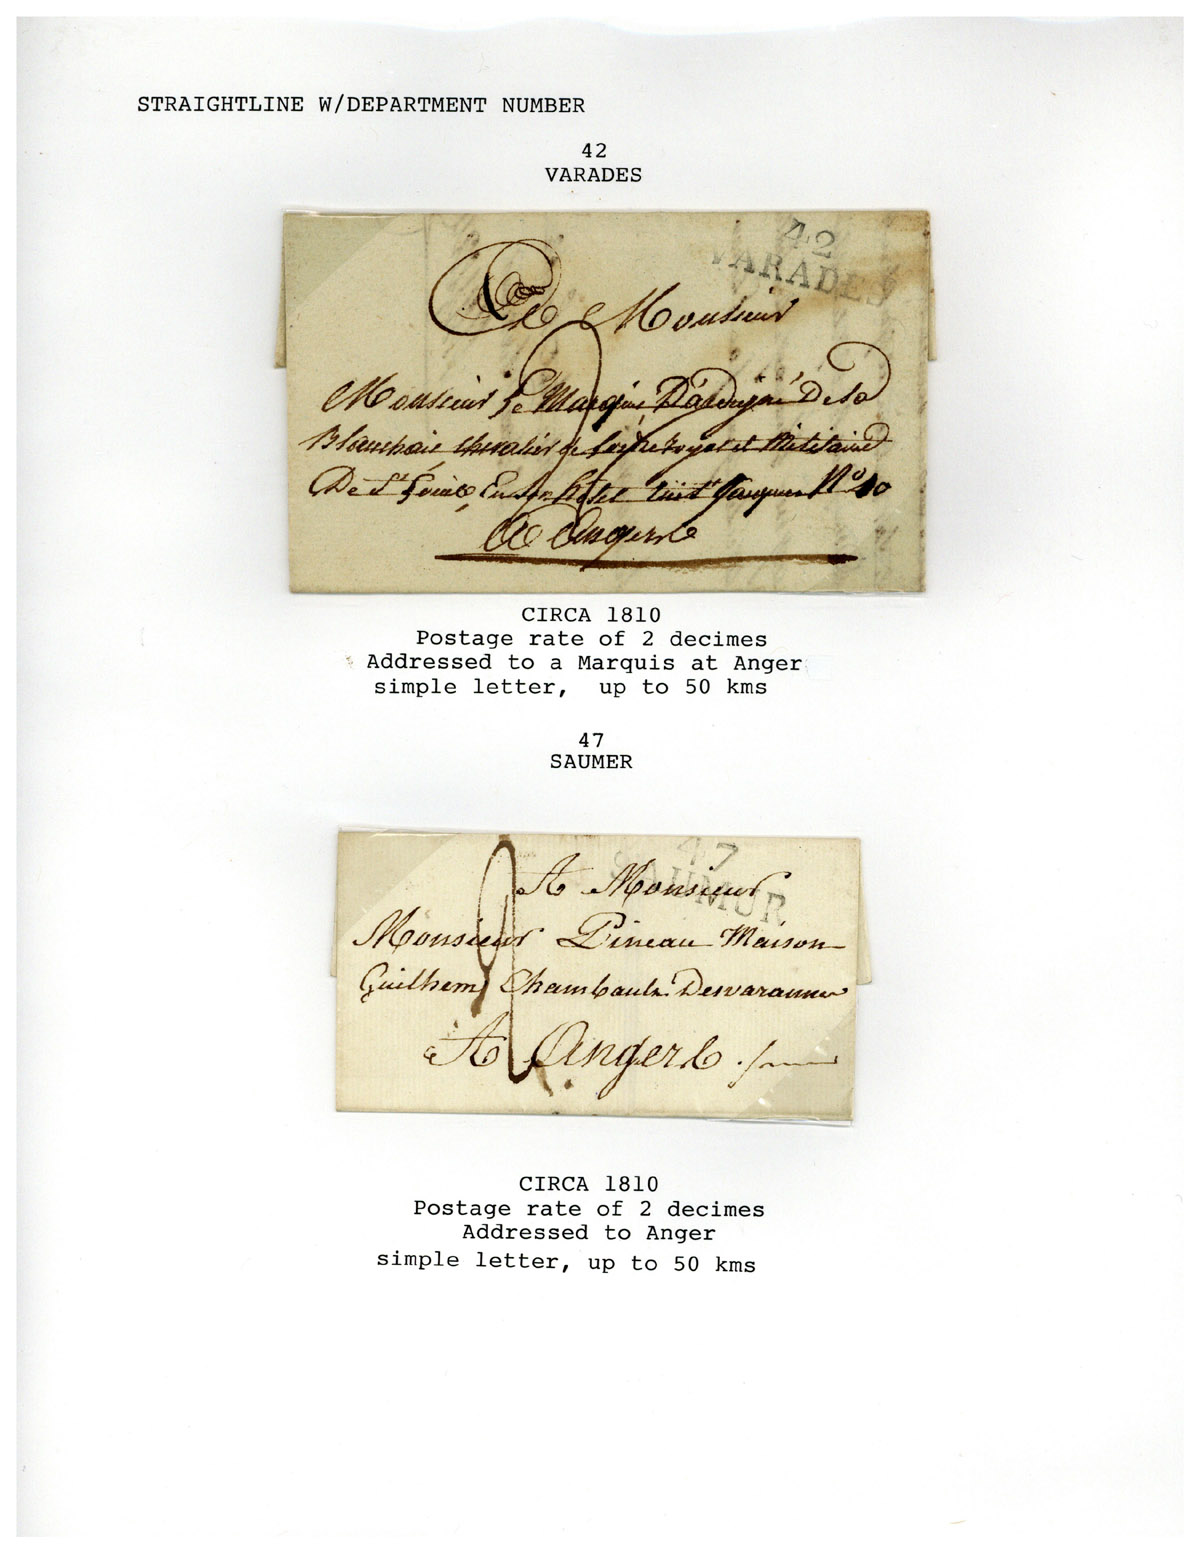 STRAIGHTLINE W/DEPARTMENT NUMBER
42
VARADES
42
VARADES
A Monsieur
Monsieur Le Marquis D'andigné De La
Blanchaie chevalier de Royal et Militaire
De St Louis, En son hotel rüe St Jacques No 10
A Angers
CIRCA 1810
Postage rate of 2 decimes
Addressed to a Marquis at Anger
simple letter, up to 50 kms
47
SAUMER
47
SAUMUR
A Monsieur
Monsieur Pineau Maison
Guilhem Chambault
A Angers
CIRCA 1810
Postage rate of 2 decimes
Addressed to Anger
simple letter, up to 50 kms